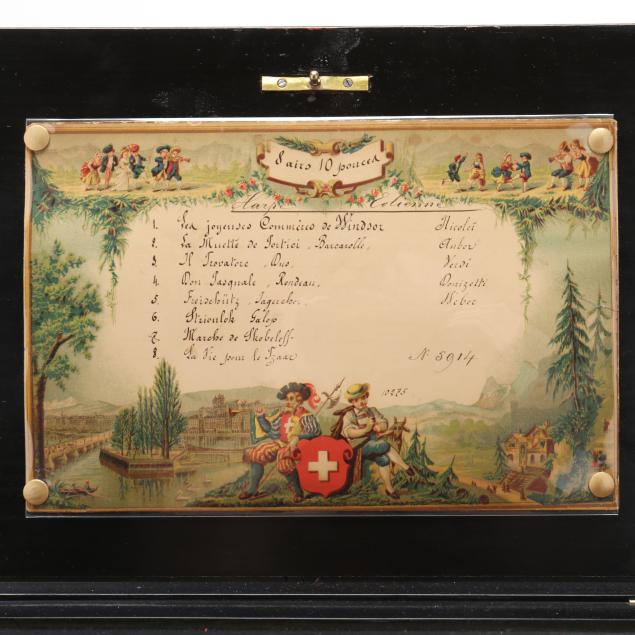 8 airs 10 pouces
Harpe Eolienne
1. Les joyeuses Commères de Windsor Nicolaï
2. La Muette de Portici, Barcarolle, Auber
3. Il Trovatore, Duo, Verdi
4. Don Pasquale, Rondeau, Donizetti
5. Freischütz, Jägerchor, Weber
6. Galop
7. Marche de Skobeleff
8. La Vie pour le Tzaar N° 5914
10275